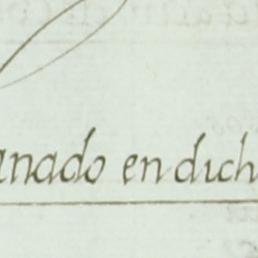 anado en dich